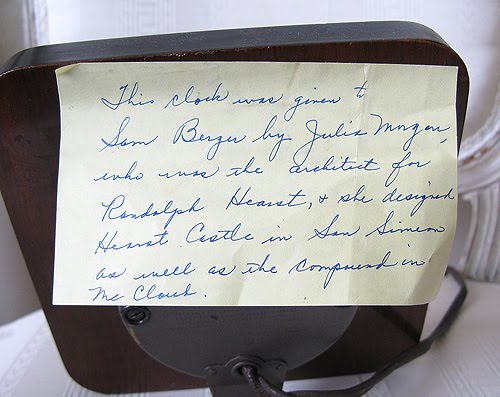 This clock was given to
Sam Berger by Julia Morgan,
who was the architect for
Randolph Hearst, & she designed
Hearst Castle in San Simeon
as well as the compound in
Mc Cloud.